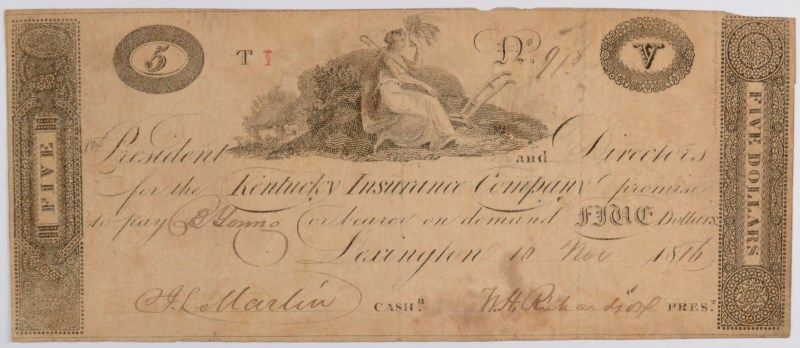 5 T I Nº 918 V
The President and Directors
for the Kentucky Insurance Company promise
to pay B Young or bearer on demand FIVE Dollars
Lexington 10 Nov 1816
J L Martin CASH.R W H Richardson PRES.T
FIVE
FIVE DOLLARS